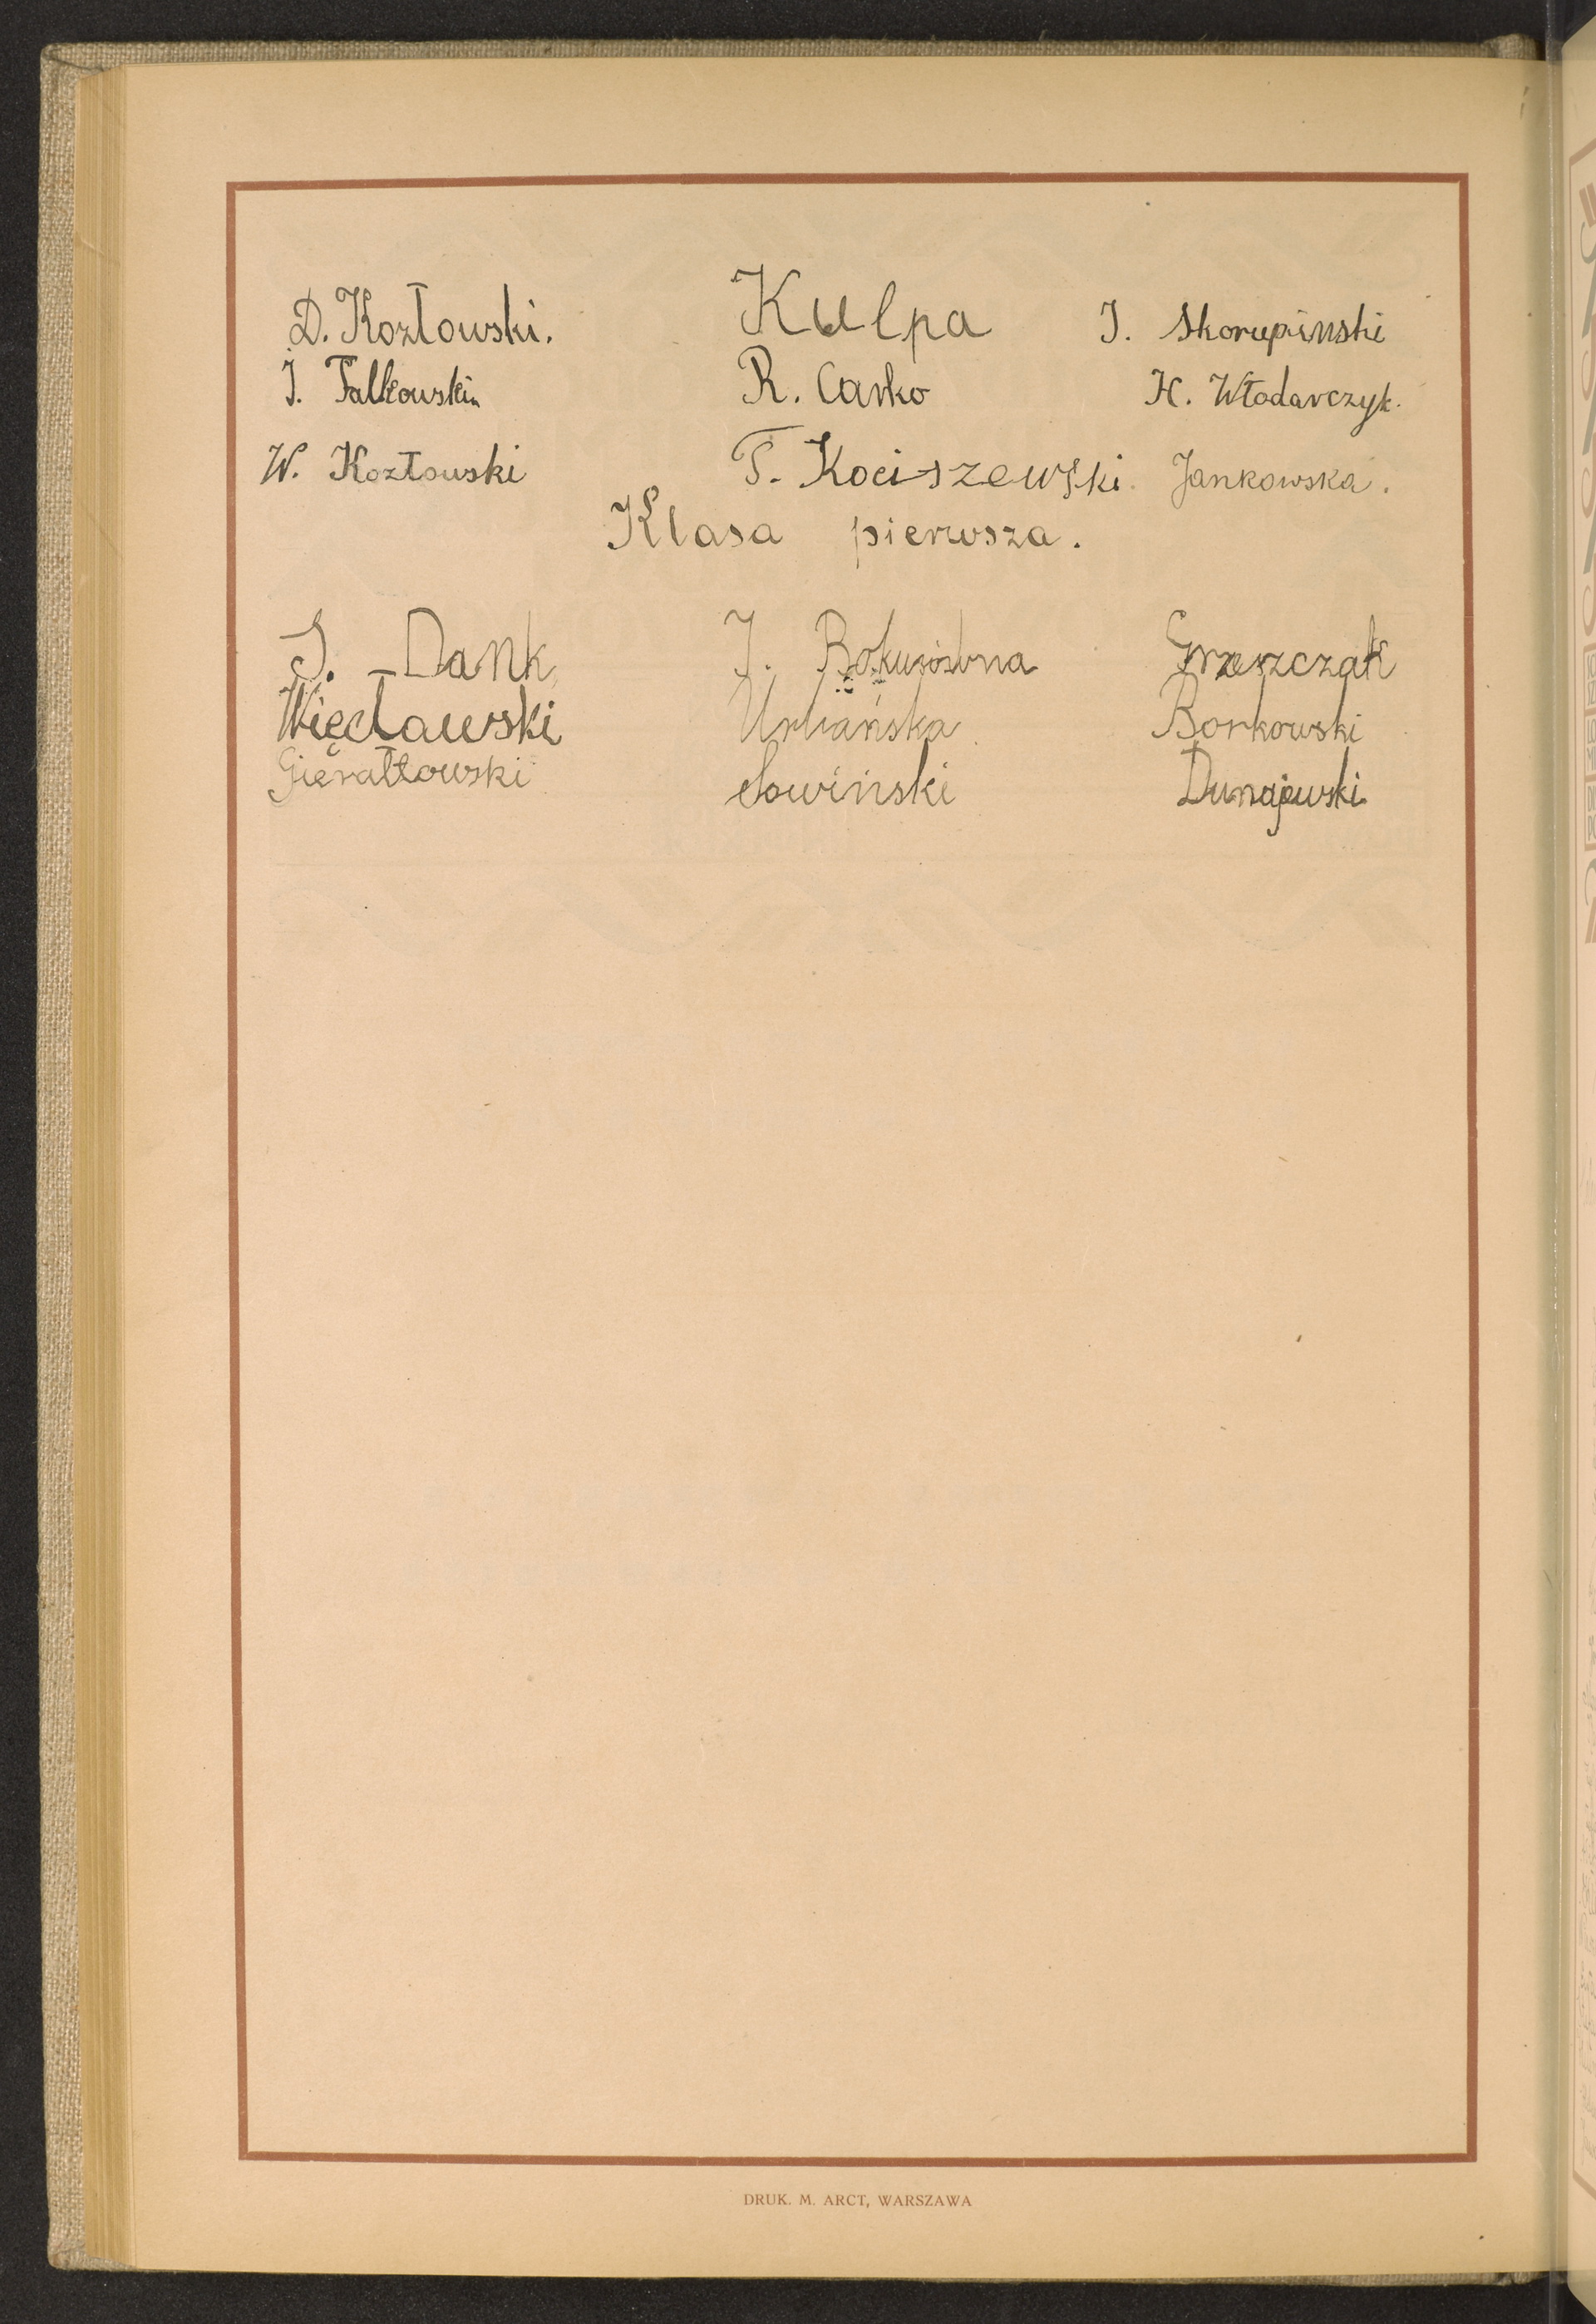 D. Kozłowski. Kulpa J. Skorupinski
J. Falkowski R. Carko H. Włodarczyk.
W. Kozłowski T. Kociszewski. Jankowska.
Klasa pierwsza.
J. Dank J. Grzeszczak
Więcławski Urbańska Borkowski
Gierałtowski Sowiński Dunajewski
DRUK. M. ARCT, WARSZAWA